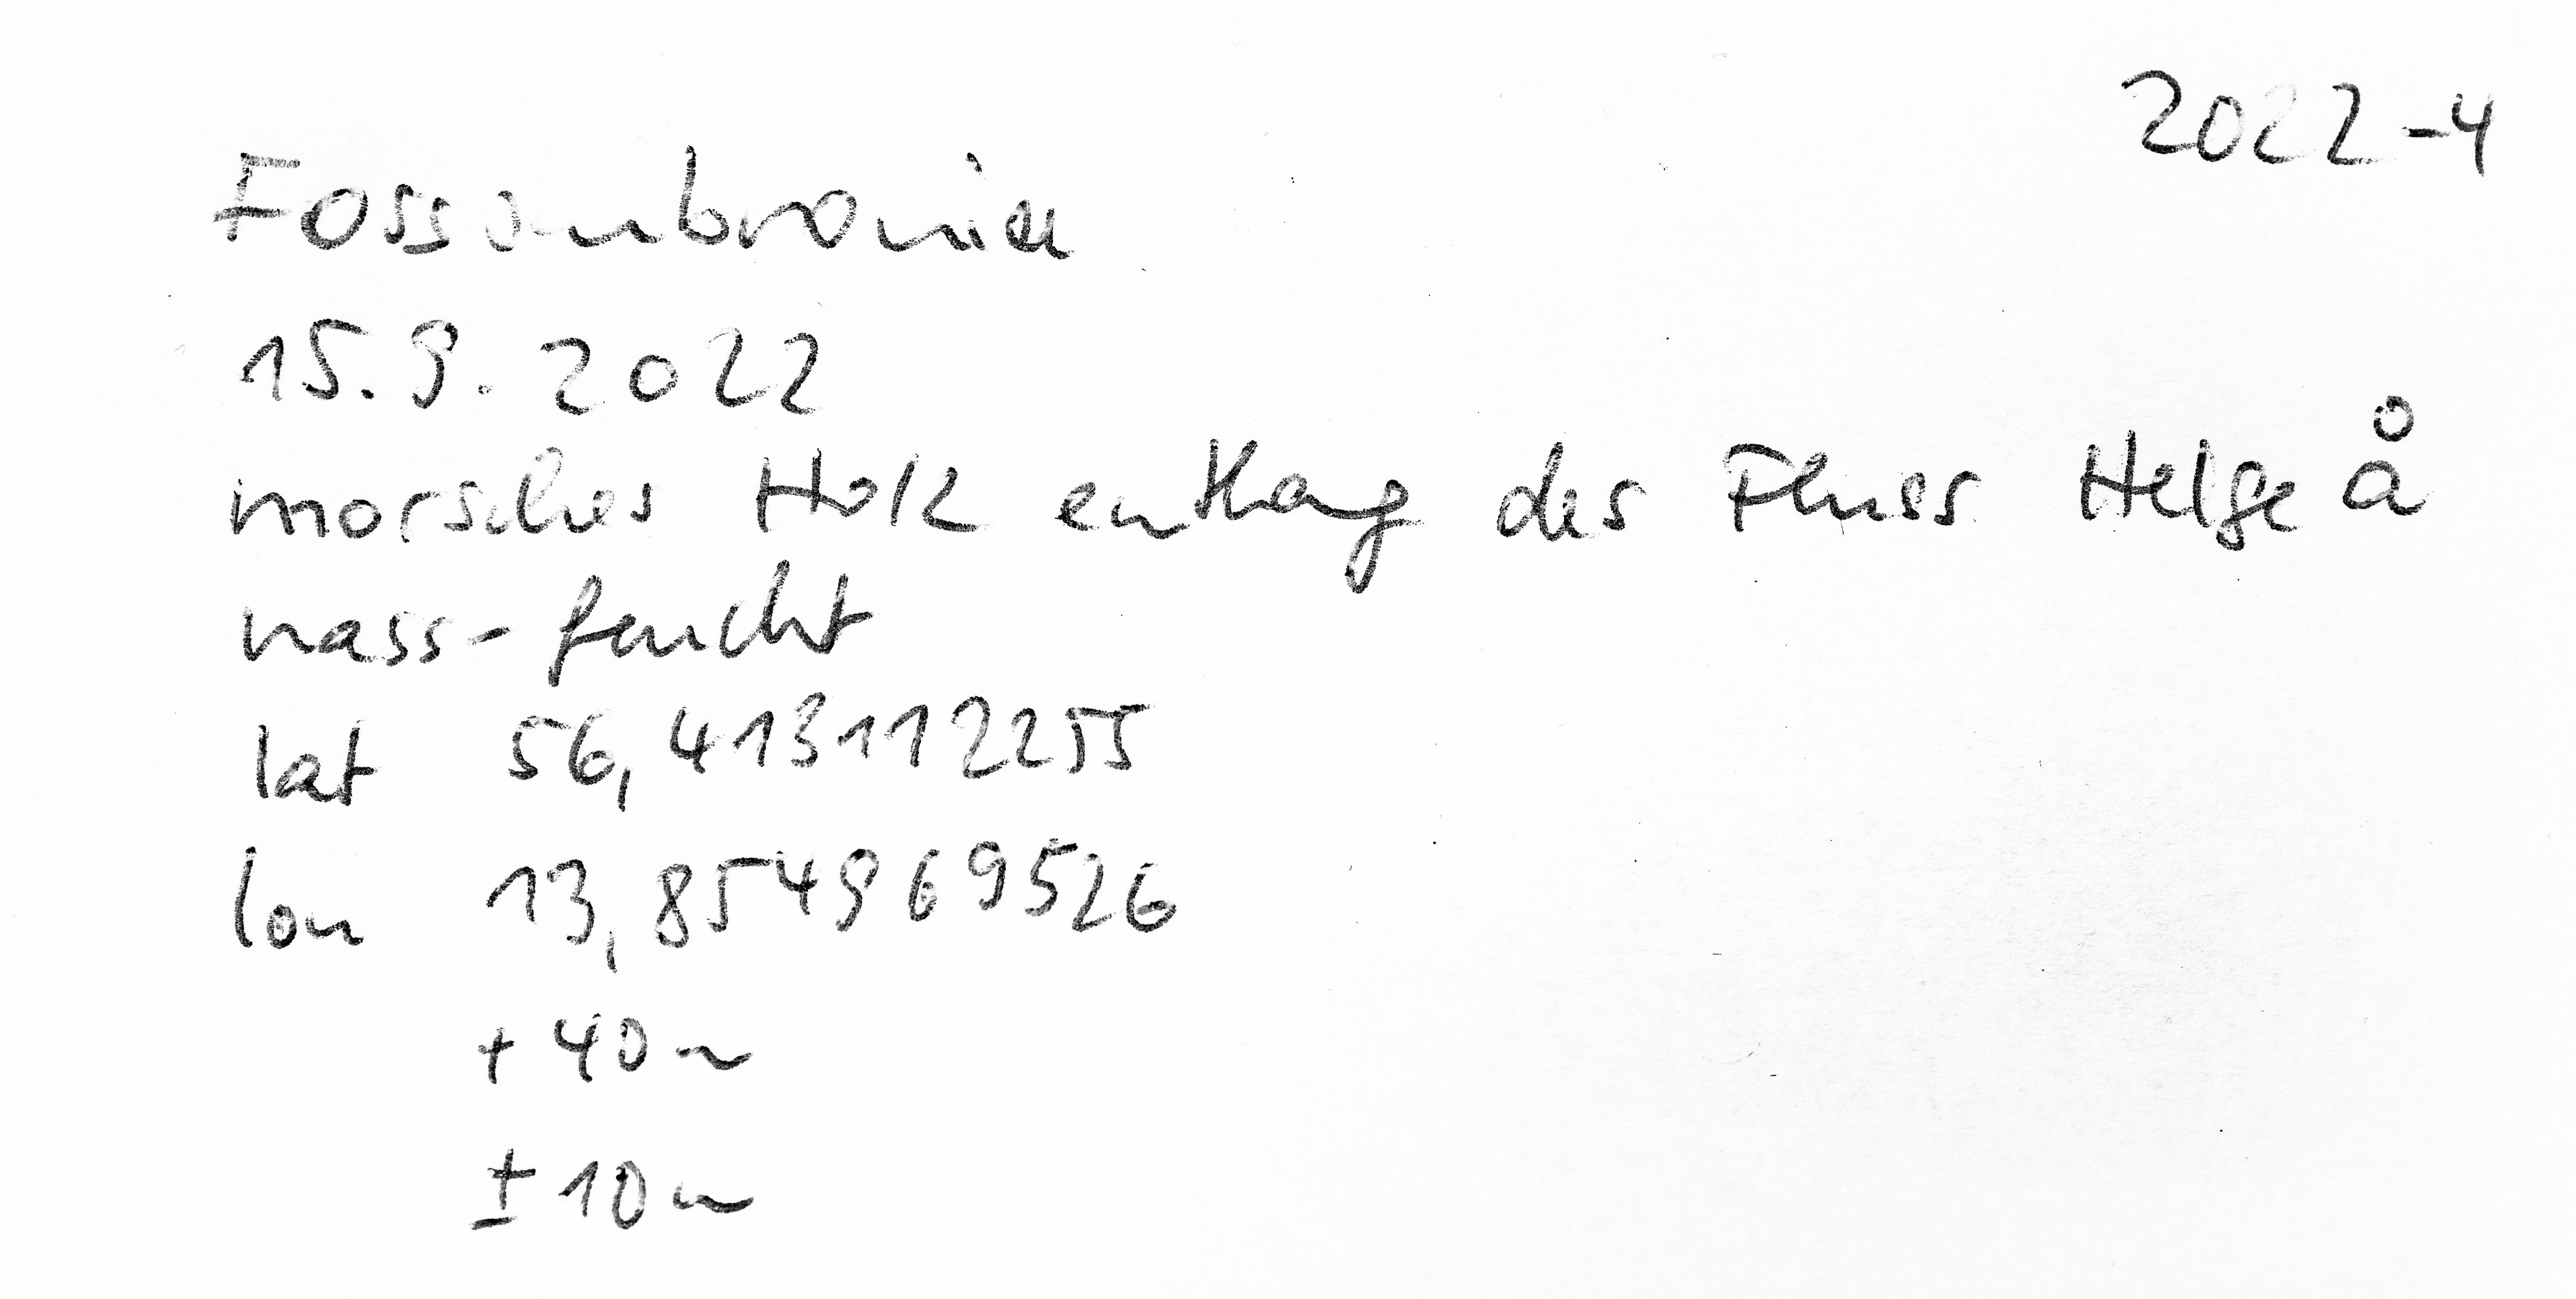 2022-4
Fossombronia
15.9.2022
morsches Holz entlang des Fluss Helge å
nass-feucht
lat 56,413112255
lon 13,854969526
+ 40m
± 10m